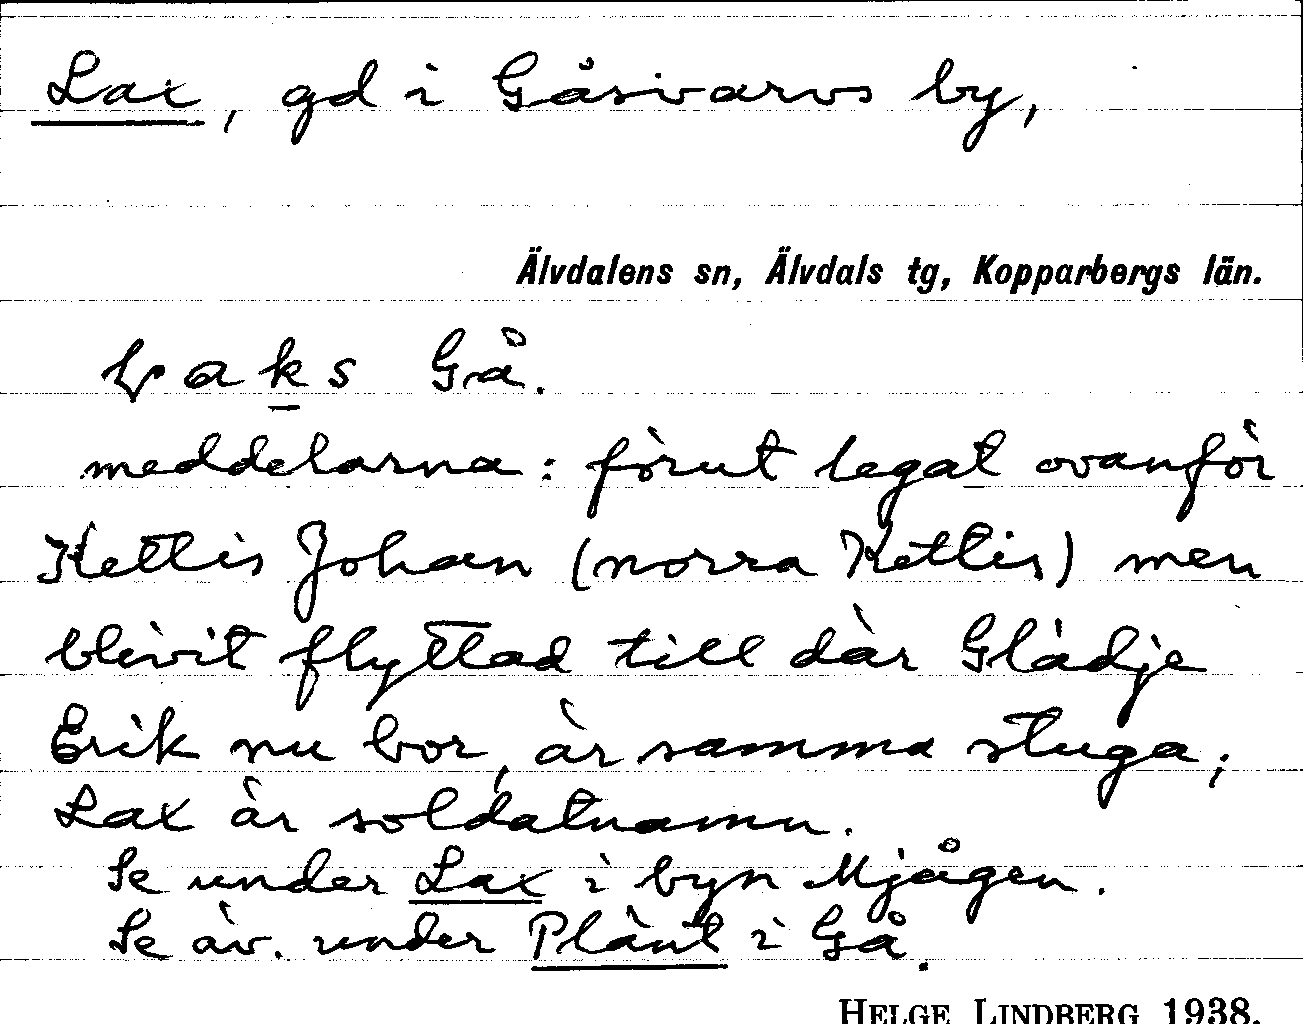 Lax, gd i Gåsvarvs by,
Älvdalens sn, Älvdals tg, Kopparbergs län.
Laks Gå.
meddelarna: förut legat ovanför
Kettis Johan (norra Kettis) men
blivit flyttad till där Glädje
Erik nu bor, är samma stuga;
Lax är soldatnamn.
Se under Lax i byn Mjågen.
Se äv. under Plänt i Gå.
HELGE LINDBERG 1938.